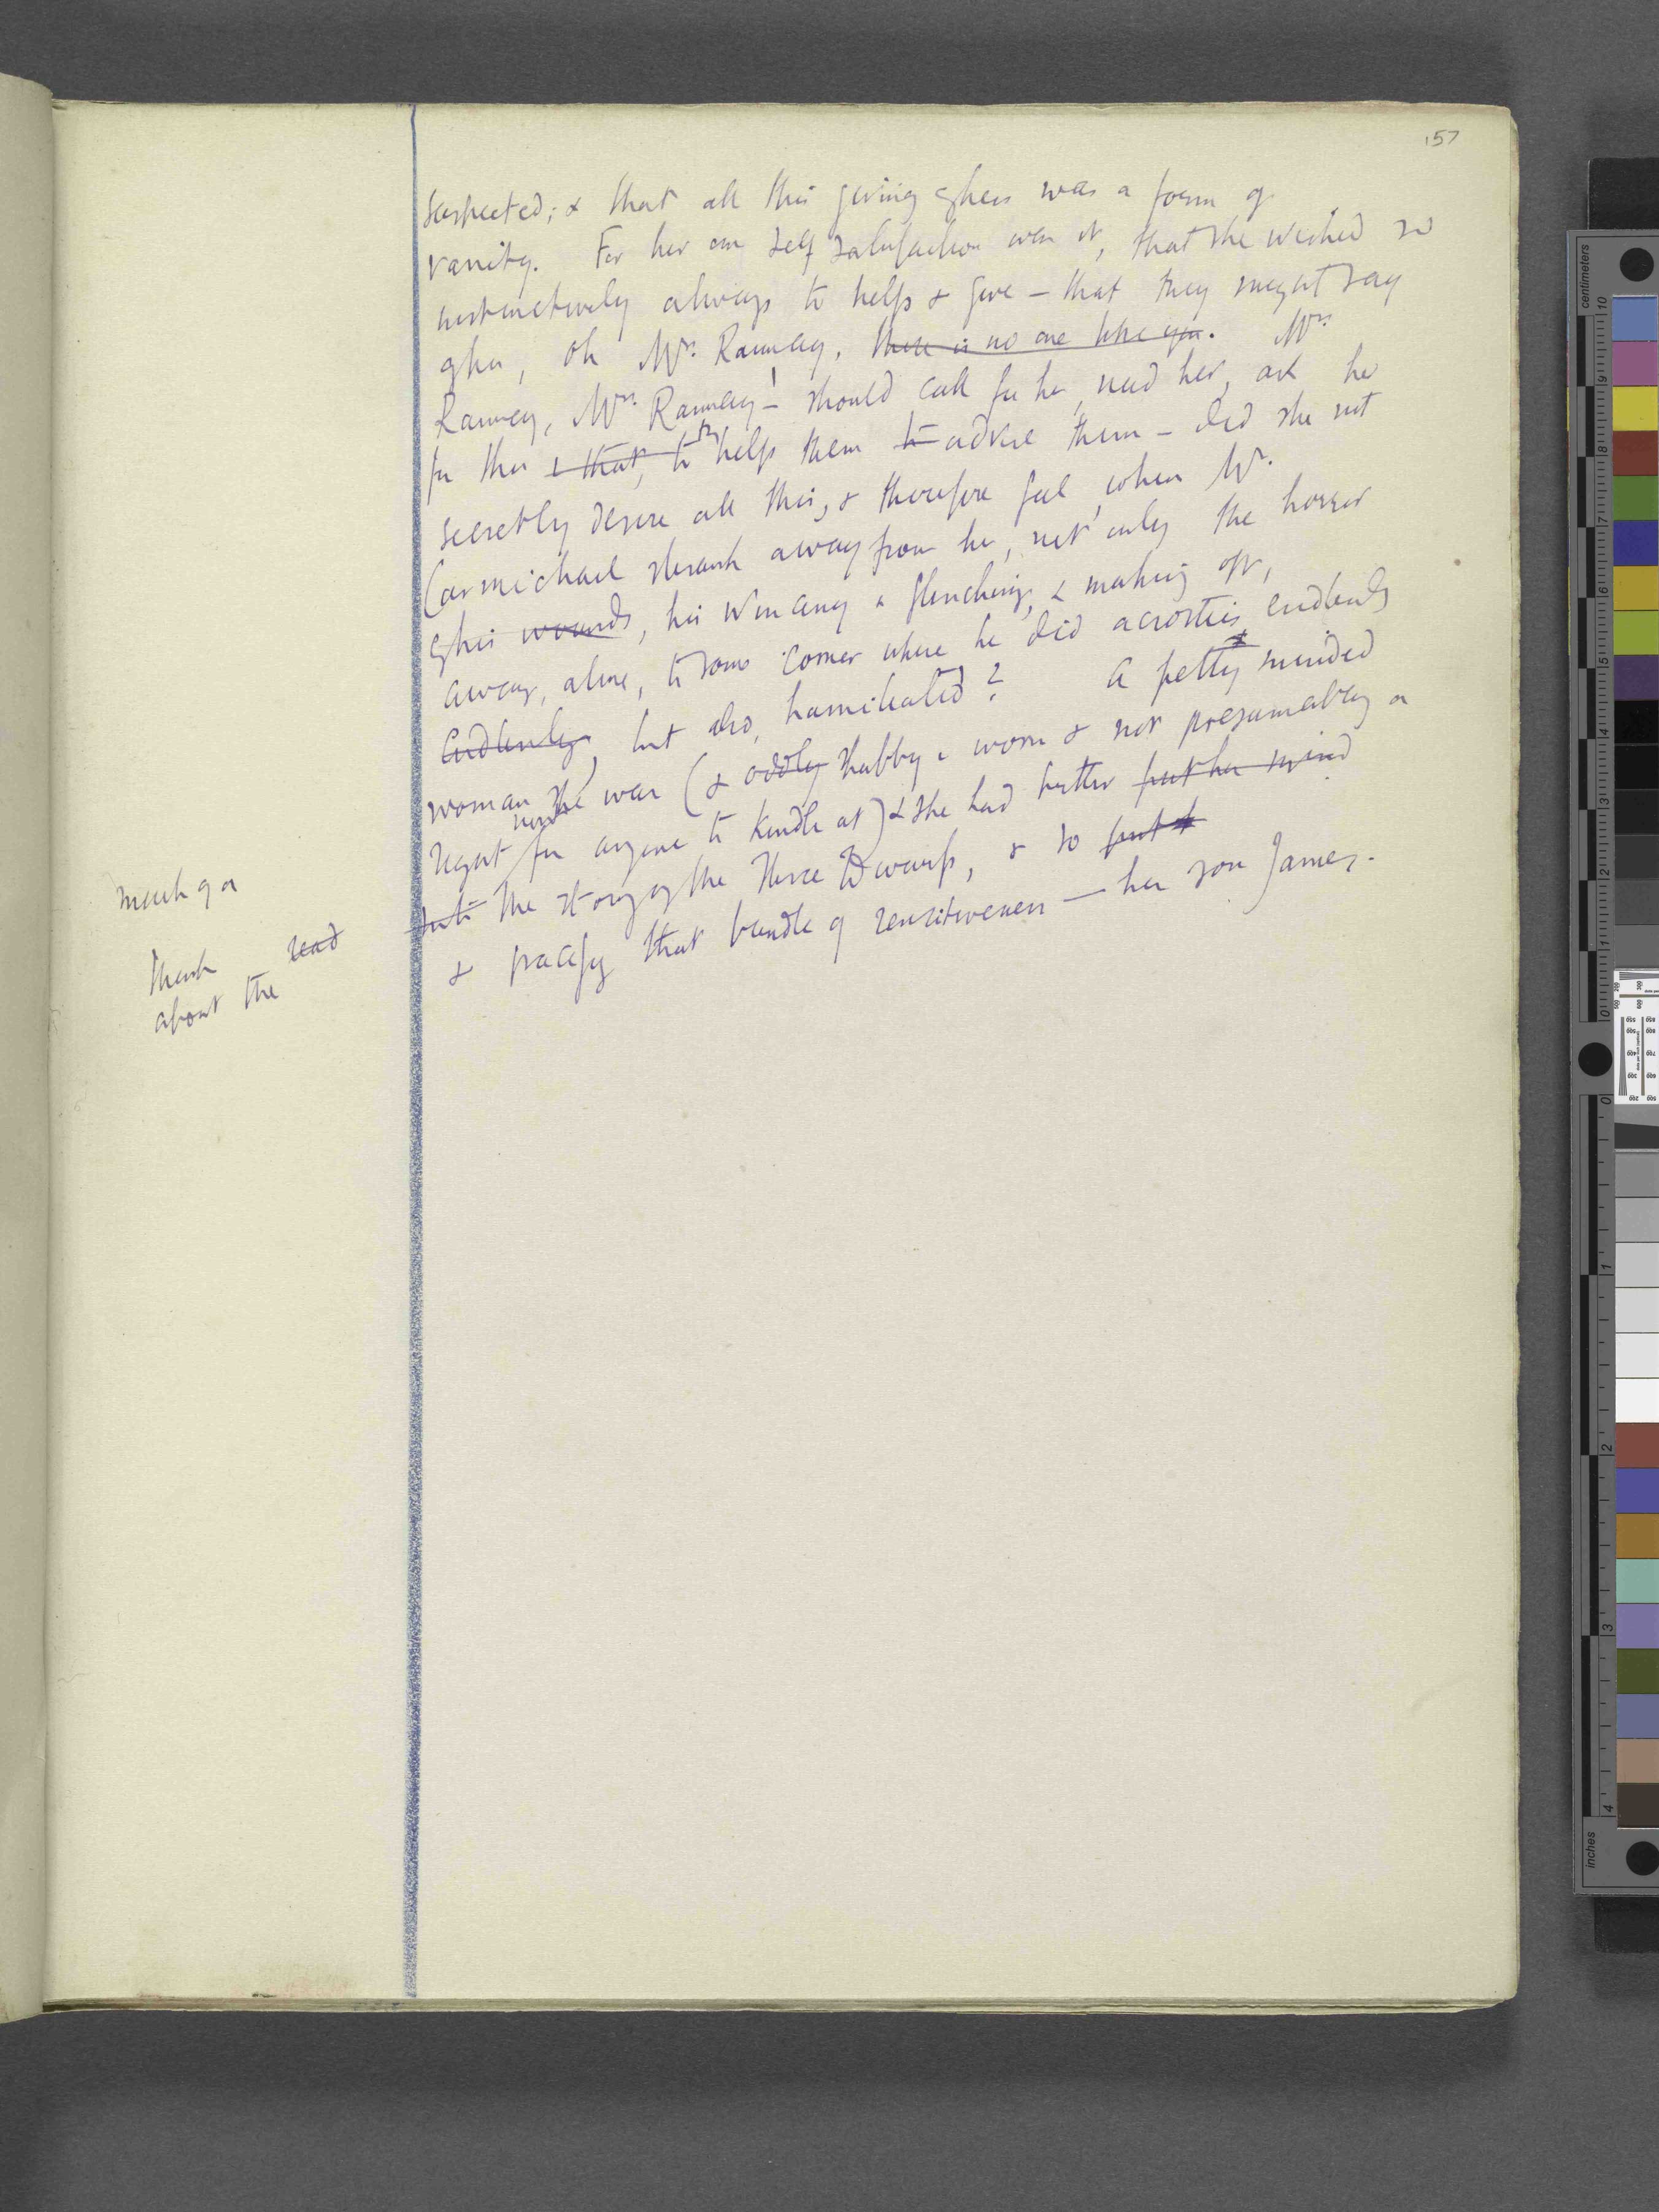 157
suspected; & that all this giving of hers was a form of
vanity. For her own self satisfaction was it, that she wished so
instinctively always to help & give – that they might say
of her, Oh Mrs. Ramsay, there is no one like you. Mrs
Ramsay, Mrs. Ramsay! – should call for her, need her, ask her
for this & that, to help them to advise them – did she not
secretly desire all this, & therefore feel, when Mr.
Carmichael shrank away from her, not only the horror
of his wounds, his wincing & flinching, & making off,
away, alone, to some corner where he did acrostics endlessly
endlessly, but also, humiliated? A petty minded
woman she was (& oddly shabby & worn & not presumably a
much of a
sight now for anyone to kindle at) & she had better put her mind
into the story of the Three Dwarfs, & so put
think read
about the
& pacify that bundle of sensitiveness – her son James.